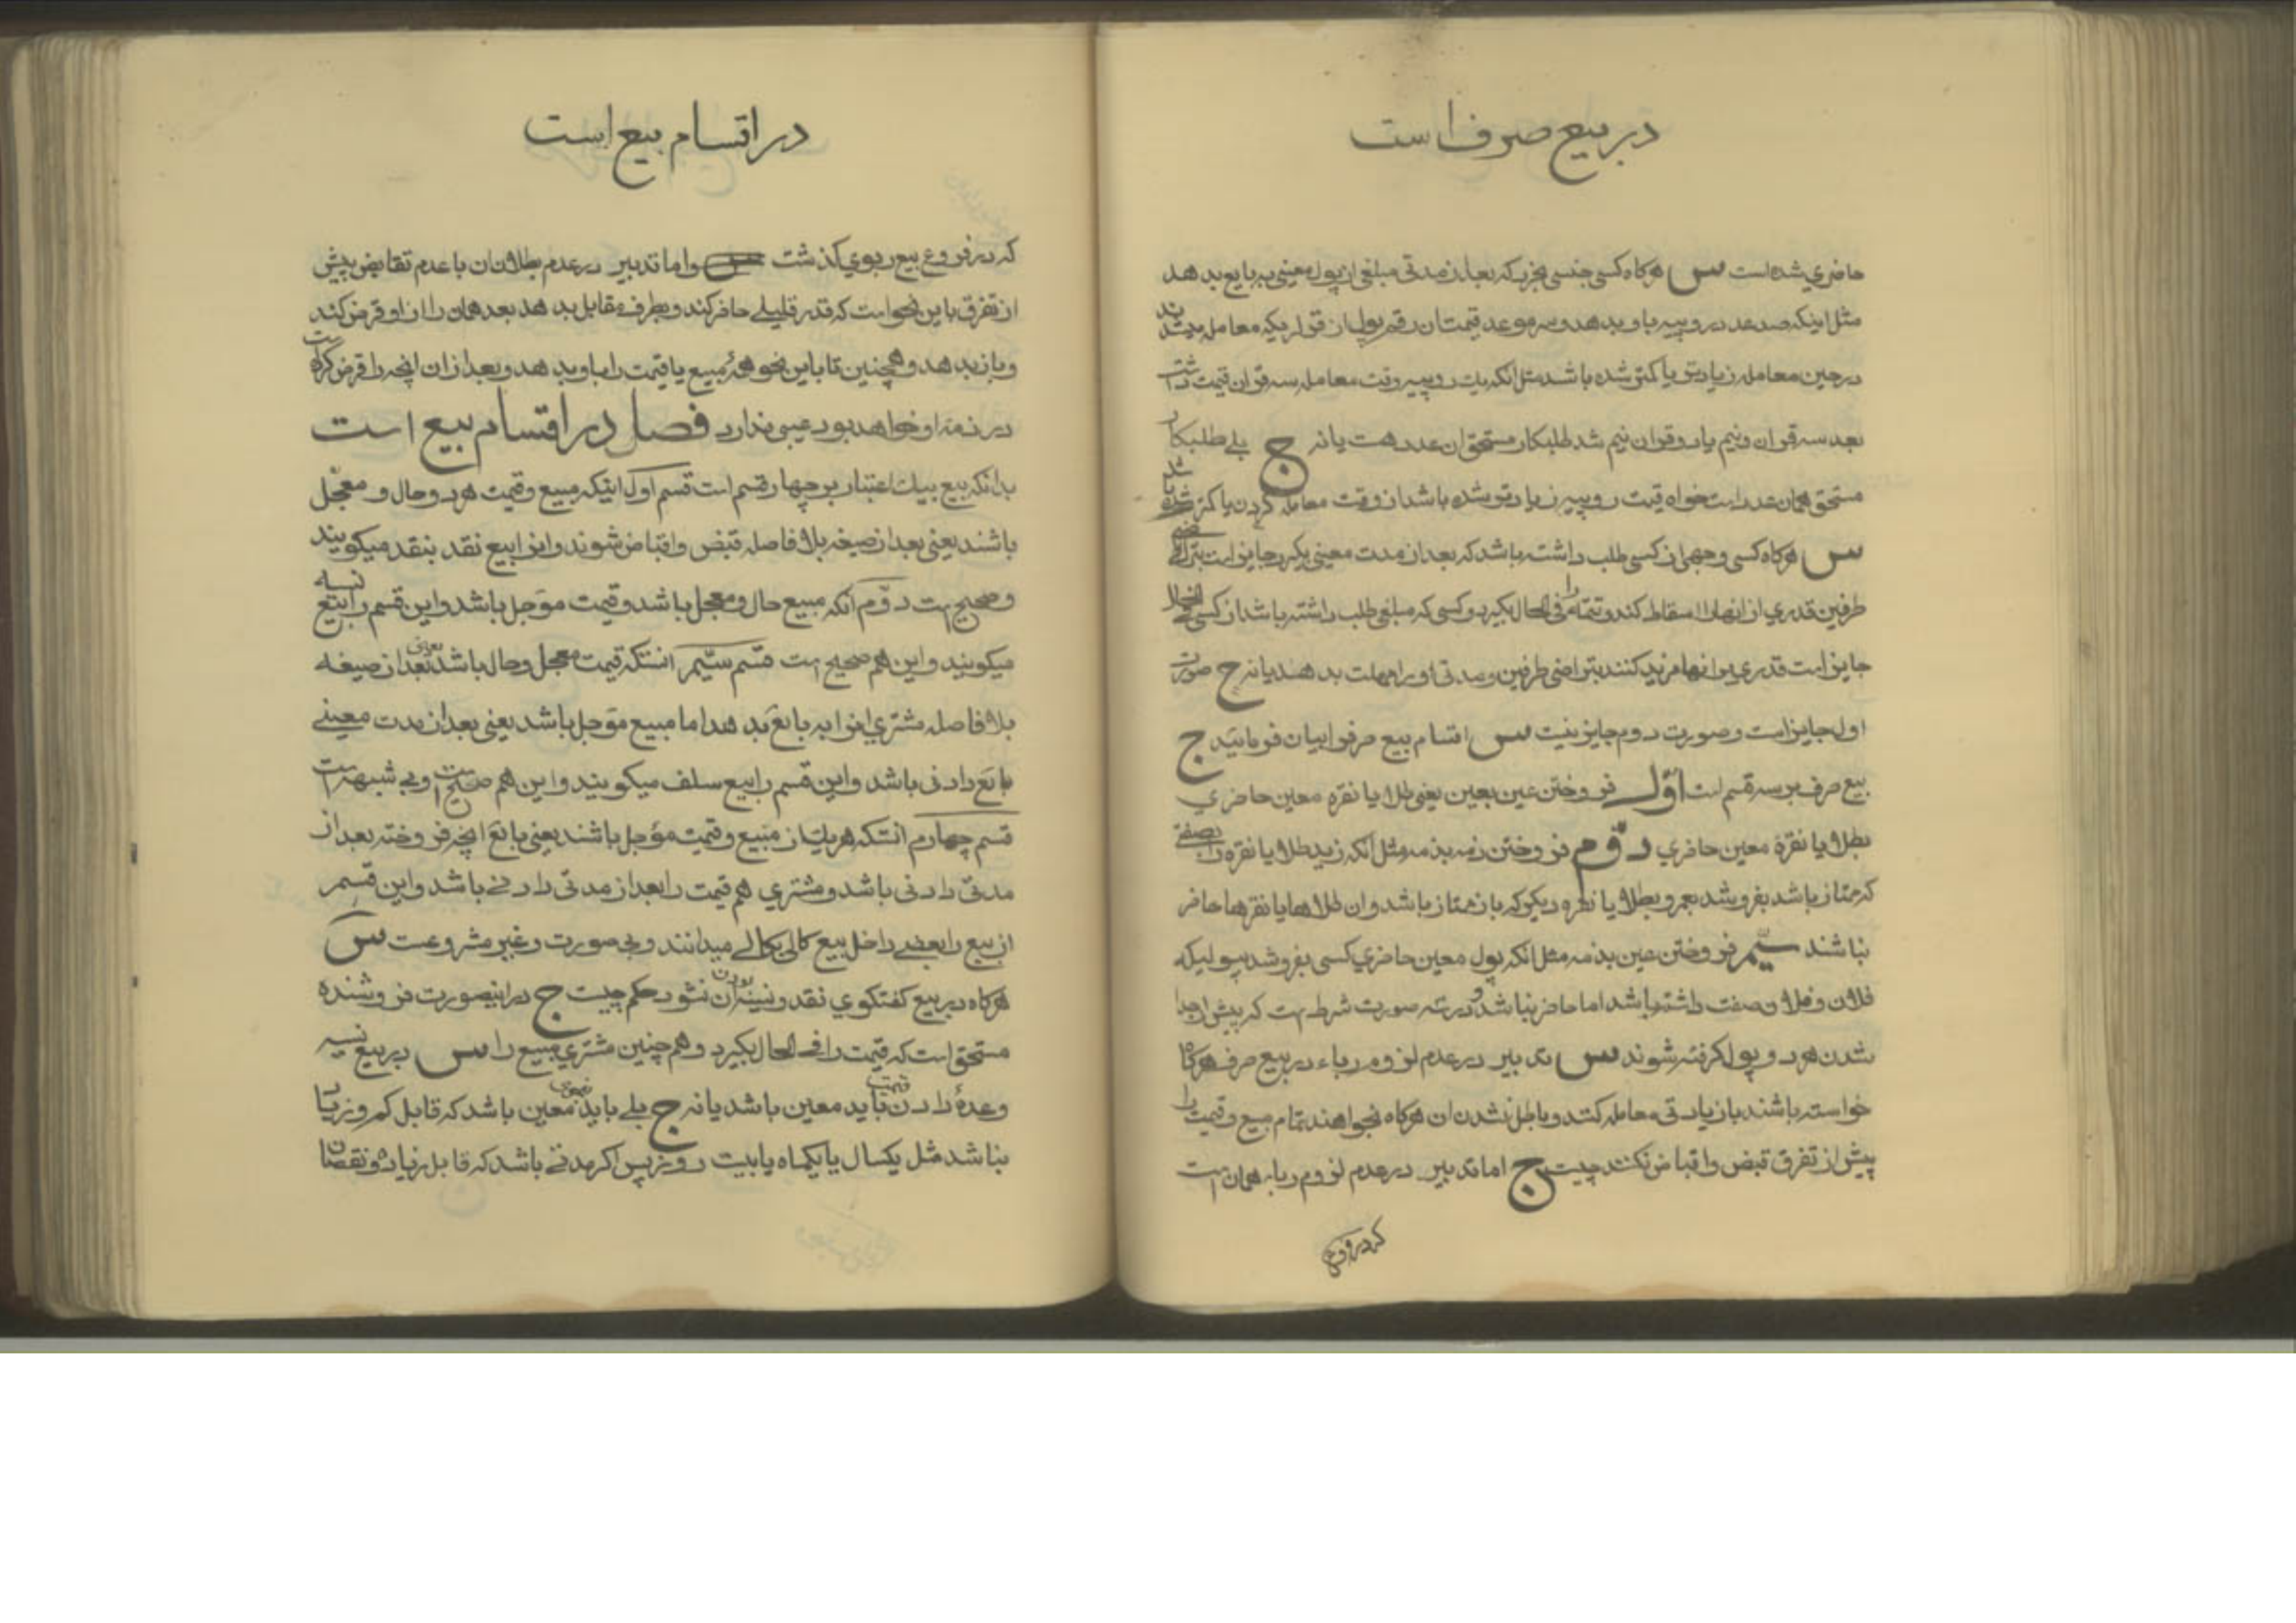 در بیع صرف است
حاضری شده است س هرکاه کسی جنسی بخرد که بعد از مدتی مبلغی از پول معینی به بایع بدهد
مثل اینکه صد عدد روپیه باو بدهد و سر موعد قیمت ان رقم پول از قراریکه معامله میشد
در حین معامله زیادتر یا کمتر شده باشد مثل انکه یک روپیه وقت معامله سه قران قیمت داشت
بعد سه قران و نیم یا دو قران نیم شد طلبکار مستحق ان عدد هست یا نه ج بلی طلبکار
مستحق همان عدد است خواه قیمت روپیه زیادتر شده باشد از وقت معامله کردن یا کمتر شده باشد
س هرکاه کسی وجهی از کسی طلب داشته باشد که بعد از مدت معینی بگیرد جایز است بتراضی
طرفین قدری از انها را اسقاط کند و تتمه را فی الحال بگیرد و کسی که مبلغی طلب داشته باشد از کسی
جایز است قدری بر انها مزید کنند بتراضی طرفین و مدتی او را مهلت بدهند یا نه ج صورت
اول جایز است و صورت دوم جایز نیست س اقسام بیع صرف را بیان فرمایید ج
بیع صرف بر سه قسم است اول فروختن عین بعین یعنی طلا یا نقره معین حاضری
بطلا یا نقره معین حاضری دوم فروختن ذمه بذمه مثل انکه زید طلا یا نقره را بصفتی
که ممتاز باشد بفروشد بعمرو بطلا یا نقره دیکر که باز ممتاز باشد و ان طلاها یا نقرها حاضر
نباشند سیم فروختن عین بذمه مثل انکه پول معین حاضری کسی بفروشد بپولیکه
فلان و فلان صفت داشته باشد اما حاضر نباشد و در سه صورت شرط است که پیش از جدا
شدن هر دو پول کرفته شوند س تدبیر در عدم لزوم رباء در بیع صرف هرکاه
خواسته باشند با زیادتی معامله کنند و باطل نشدن ان هرکاه نخواهند تمام مبیع و قیمت را
پیش از تفرق قبض و اقباض نکنند چیست ج اما تدبیر در عدم لزوم ربا بهمان است
که در فروع
در اقسام بیع است
که در فروع بیع ربوی کذشت و اما تدبیر در عدم بطلان ان با عدم تقابض پیش
از تفرق باین نحو است که قدر قلیلی حاضر کند و بطرف مقابل بدهد بعد همان را از او قرض کند
و باز بدهد و همچنین تا باین نحو همهٔ مبیع یا قیمت را باو بدهد و بعد از ان انچه را قرض کرده است
در ذمه او خواهد بود عیبی ندارد فصل در اقسام بیع است
بدانکه بیع بیک اعتبار بر چهار قسم است قسم اول اینکه مبیع و قیمت هر دو حال و معجّل
باشند یعنی بعد از صیغه بلا فاصله قبض و اقباض شوند و انرا بیع نقد بنقد میکویند
و صحیح است دوّم آنکه مبیع حال و معجل باشد و قیمت موجل باشد و این قسم را بیع نسیه
میکویند و این هم صحیح است قسم سیّم انستکه قیمت معجل و حال باشد یعنی بعد از صیغه
بلا فاصله مشتری انرا به بایع بدهد اما مبیع موجل باشد یعنی بعد از مدت معینی
بایع دادنی باشد و این قسم را بیع سلف میکویند و این هم صحیح است و بی شبهه است
قسم چهارم انستکه هر یک از مبیع و قیمت مؤجل باشند یعنی بایع انچه فروخته بعد از
مدتی دادنی باشد و مشتری هم قیمت را بعد از مدتی دادنی باشد و این قسم
از بیع را بعضی داخل بیع کالی بکالی میدانند و بی صورت و غیر مشروعست س
هرکاه در بیع کفتکوی نقد و نسیه بودن ان نشود حکم چیست ج در اینصورت فروشنده
مستحق است که قیمت را فی الحال بکیرد و همچنین مشتری مبیع را س در بیع نسیه
وعدهٔ دادن قیمت باید معین باشد یا نه ج بلی باید بنحوی معین باشد که قابل کم و زیاد
نباشد مثل یکسال یا یکماه یا بیست روز پس اکر مدتی باشد که قابل زیاده و نقصان